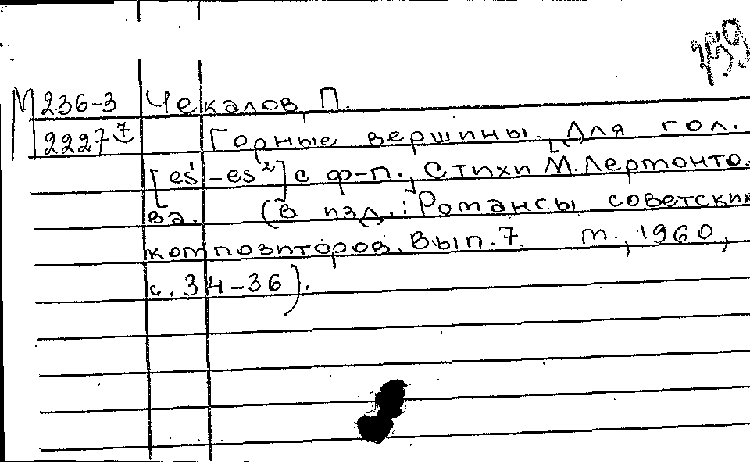 739
М 236-3 Чекалов, П.
2227 7 Горные вершины. Для гол.
[es¹-es²] с ф-п., Стихи М. Лермонто-
ва. (В изд.: Романсы советских
композиторов. Вып. 7. М., 1960,
с. 34-36).